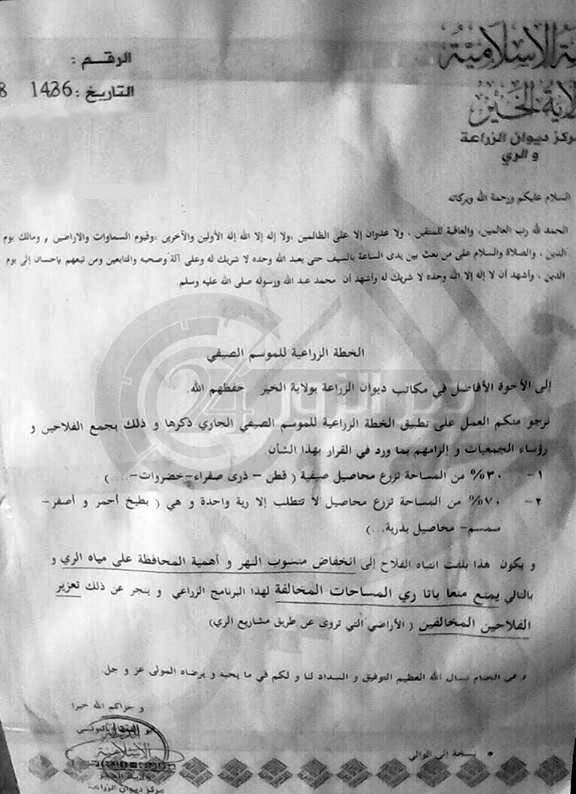 الرقم :
التاريخ : 1436
الإسلامية
ولاية الخير
مركز ديوان الزراعة
و الري
السلام عليكم ورحمة الله وبركاته
الحمد لله رب العالمين، والعاقبة للمتقين ، ولا عدوان إلا على الظالمين ،ولا إله إلا الله إله الأولين والآخرين ،وقيوم السماوات والاراضين ,ومالك يوم
الدين ، والصلاة والسلام على من بعث بين يدى الساعة بالسيف حتى يعبد الله وحده لا شريك له وعلى آلة وصحبه والتابعين ومن تبعهم بإحسان إلى يوم
الدين ، وأشهد أن لا إله إلا الله وحده لا شريك له وأشهد أن محمد عبد الله ورسوله صلى الله عليه وسلم.
الخطة الزراعية للموسم الصيفي
إلى الأخوة الأفاضل في مكاتب ديوان الزراعة بولاية الخير حفظهم الله.
نرجو منكم العمل على تطبيق الخطة الزراعية للموسم الصيفي الجاري ذكرها و ذلك بجمع الفلاحين و
رؤساء الجمعيات و إلزامهم بما ورد في القرار بهذا الشأن
١- ٣٠% من المساحة تزرع محاصيل صيفية ( قطن – ذرى صفراء-خضروات-....)
٢- ٧٠% من المساحة تزرع محاصيل لا تتطلب إلا رية واحدة و هي ( بطيخ أحمر و أصفر-
سمسم- محاصيل بذرية...)
و يكون هذا بلفت انتباه الفلاح إلى إنخفاض منسوب النهر و أهمية المحافظة على مياه الري و
بالتالي يمنع منعا باتا ري المساحات المخالفة لهذا البرنامج الزراعي و ينجر عن ذلك تعزير
الفلاحين المخالفين ( الأراضي التي تروى عن طريق مشاريع الري)
و في الختام نسأل الله العظيم التوفيق و السداد لنا و لكم في ما يحبه و يرضاه المولى عز و جل.
و جزاكم الله خيرا
التونسي
الإسلامية
مركز ديوان الزراعة
• نسخة إلى الوالي
24